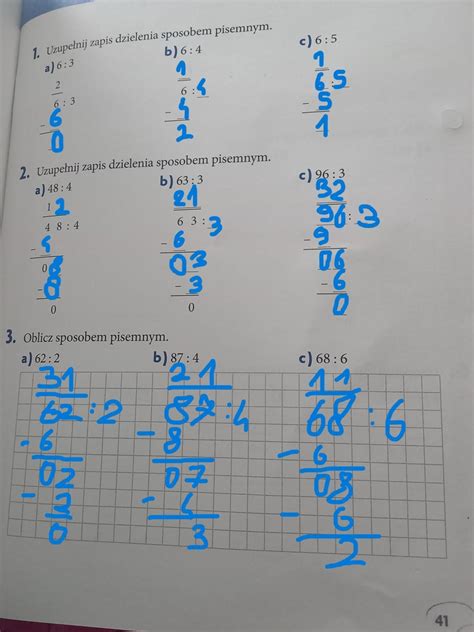 1. Uzupełnij zapis dzielenia sposobem pisemnym.
a) 6 : 3 b) 6 : 4 c) 6 : 5
2 1 1
6 : 3 6 : 4 6 : 5
- 6 - 4 - 5
0 2 1
2. Uzupełnij zapis dzielenia sposobem pisemnym.
a) 48 : 4 b) 63 : 3 c) 96 : 3
1 2 21 32
4 8 : 4 6 3 : 3 96 : 3
- 4 - 6 - 9
0 8 0 3 06
- 8 - 3 - 6
0 0 0
3. Oblicz sposobem pisemnym.
a) 62 : 2 b) 87 : 4 c) 68 : 6
31 21 11
62 : 2 87 : 4 68 : 6
- 6 - 8 - 6
02 07 08
- 2 - 4 - 6
0 3 2
41